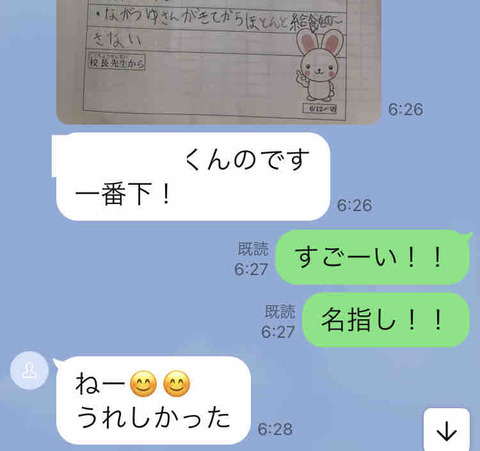 ・ながつゆさんがきてからほとんど給食
きない
校長先生から
6:26
くんのです
一番下！
6:26
既読
6:27
すごーい！！
既読
6:27
名指し！！
ねー😊😊
うれしかった
6:28